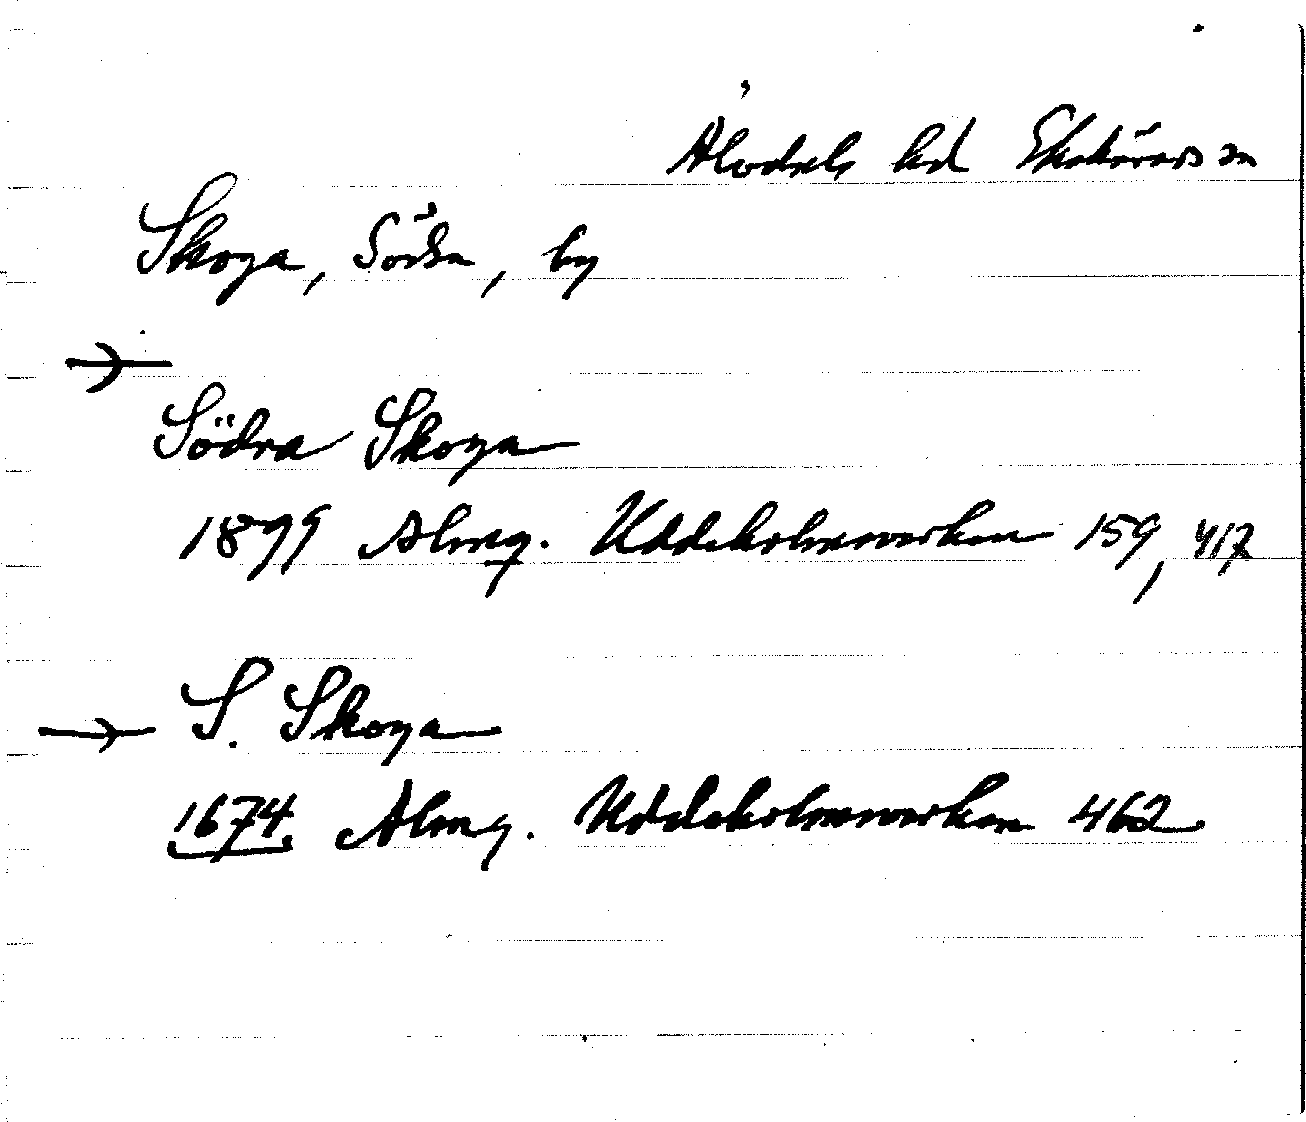 Älvdals hd Ekshärads sn
Skoga, Södra, by
Södra Skoga
1899 Almq. Uddeholmsverken 159, 417
S. Skoga
1674 Almq. Uddeholmsverken 462